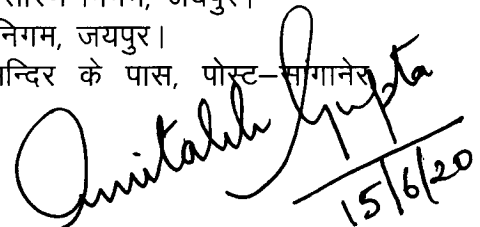 निगम, जयपुर।
निगम, जयपुर।
मन्दिर के पास, पोस्ट–सांगानेर
Amitabh Gupta
15/6/20